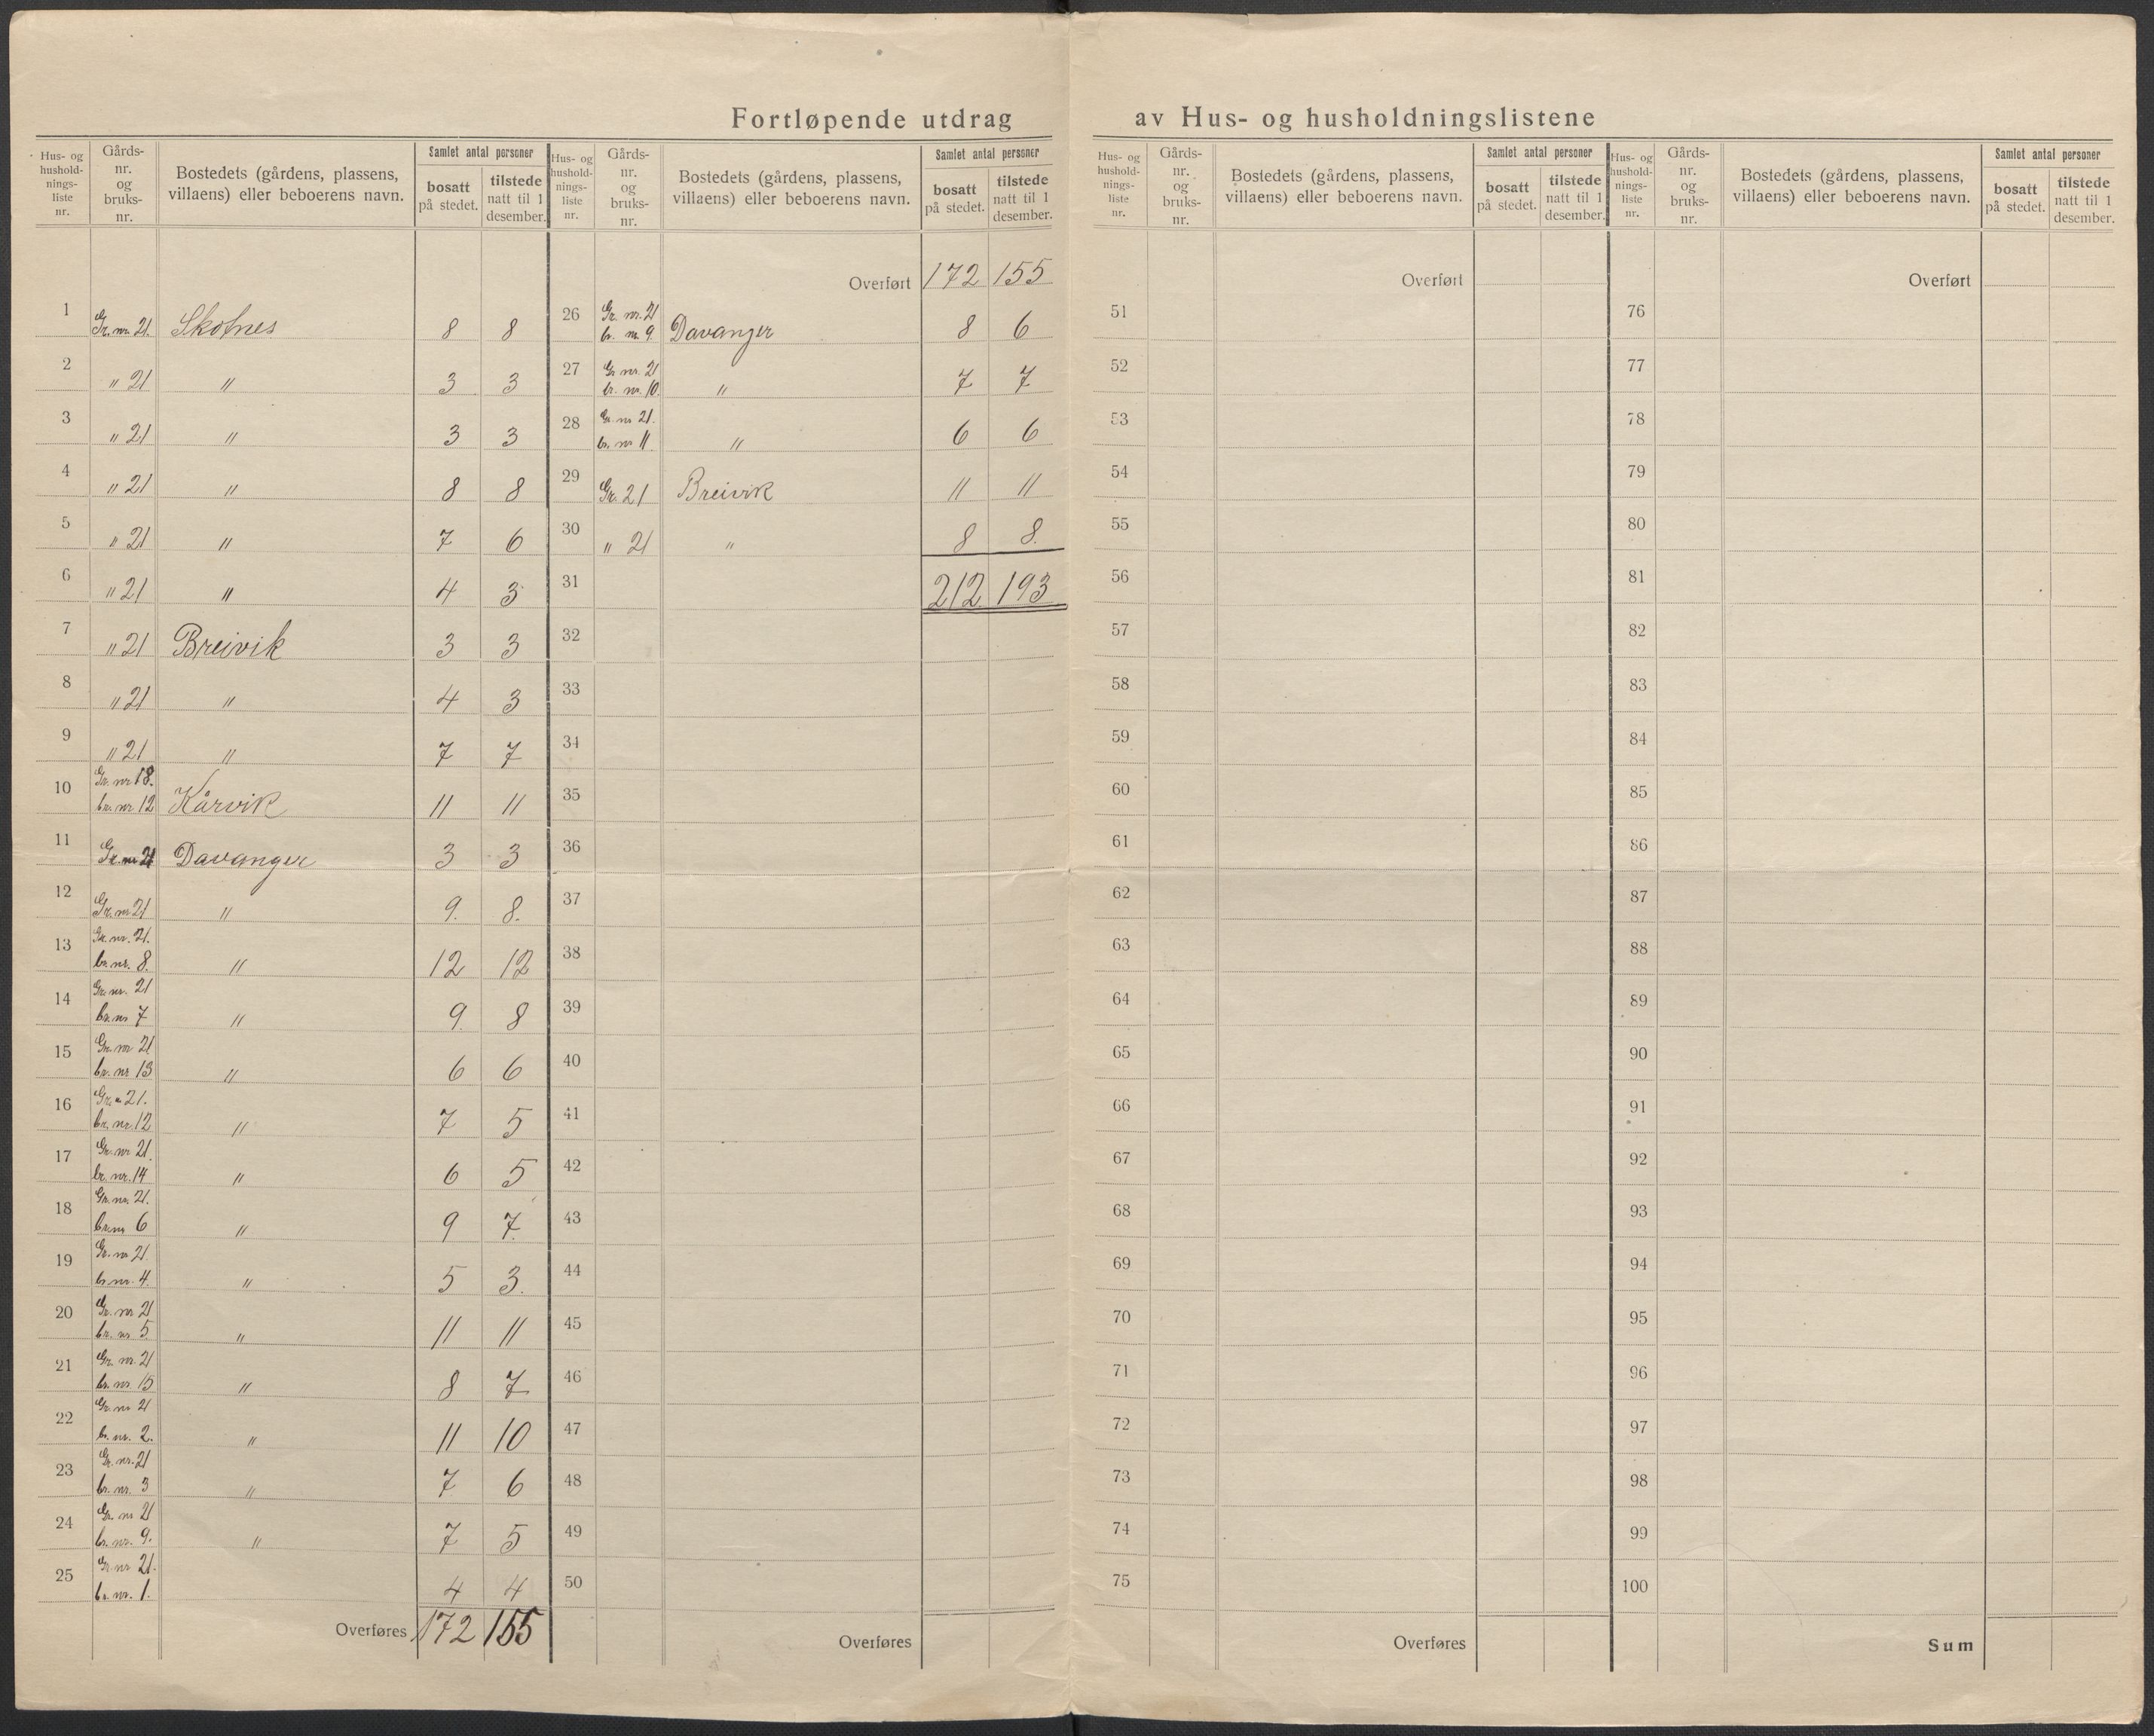 Fortløpende utdrag av Hus- og husholdningslistene
Hus- og hushold- nings- liste nr.
Gårds- nr. og bruks- nr.
Bostedets (gårdens, plassens, villaens) eller beboerens navn.
Samlet antal personer
bosatt på stedet.
tilstede natt til 1 desember.
1 Gr. nr. 21. Skotnes 8 8
2 " 21 " 3 3
3 " 21 " 3 3
4 " 21 " 8 8
5 " 21 " 7 6
6 " 21 " 4 3
7 " 21 Breivik 3 3
8 " 21 " 4 3
9 " 21 " 7 7
10 Gr. nr 18. br. nr 12 Kårvik 11 11
11 Gr. nr 21 Davanger 3 3
12 Gr. nr 21 " 9. 8.
13 Gr. nr. 21. br. nr. 8. " 12 12
14 Gr. nr. 21 br. nr 7 " 9. 8
15 Gr. nr 21 br. nr 13 " 6 6
16 Gr. " 21. br. nr. 12 " 7 5
17 Gr. nr 21. br. nr. 14 " 6 5
18 Gr. nr. 21. br. nr 6 " 9 7.
19 Gr. nr 21. br. nr. 4. " 5 3.
20 Gr. nr 21 br. nr 5. " 11 11
21 Gr. nr. 21 br. nr 15 " 8 7
22 Gr. nr 21 br. nr. 2. " 11 10
23 Gr. nr. 21 br. nr. 3 " 7 6
24 Gr. nr 21 br. nr. 9. " 7 5
25 Gr. nr 21. br. nr. 1. 4 4
Overføres 172 155
Hus- og hushold- nings- liste nr.
Gårds- nr. og bruks- nr.
Bostedets (gårdens, plassens, villaens) eller beboerens navn.
Samlet antal personer
bosatt på stedet.
tilstede natt til 1 desember.
Overført 172 155
26 Gr. nr. 21 br. nr 9. Davanger 8 6
27 Gr. nr. 21 br. nr. 10. " 7 7
28 Gr. nr 21. br. nr 11. " 6 6
29 Gr. 21 Breivik 11 11
30 " 21 " 8 8.
31 212 193
32
33
34
35
36
37
38
39
40
41
42
43
44
45
46
47
48
49
50
Overføres
Hus- og hushold- nings- liste nr.
Gårds- nr. og bruks- nr.
Bostedets (gårdens, plassens, villaens) eller beboerens navn.
Samlet antal personer
bosatt på stedet.
tilstede natt til 1 desember.
Overført
51
52
53
54
55
56
57
58
59
60
61
62
63
64
65
66
67
68
69
70
71
72
73
74
75
Overføres
Hus- og hushold- nings- liste nr.
Gårds- nr. og bruks- nr.
Bostedets (gårdens, plassens, villaens) eller beboerens navn.
Samlet antal personer
bosatt på stedet.
tilstede natt til 1 desember.
Overført
76
77
78
79
80
81
82
83
84
85
86
87
88
89
90
91
92
93
94
95
96
97
98
99
100
Sum